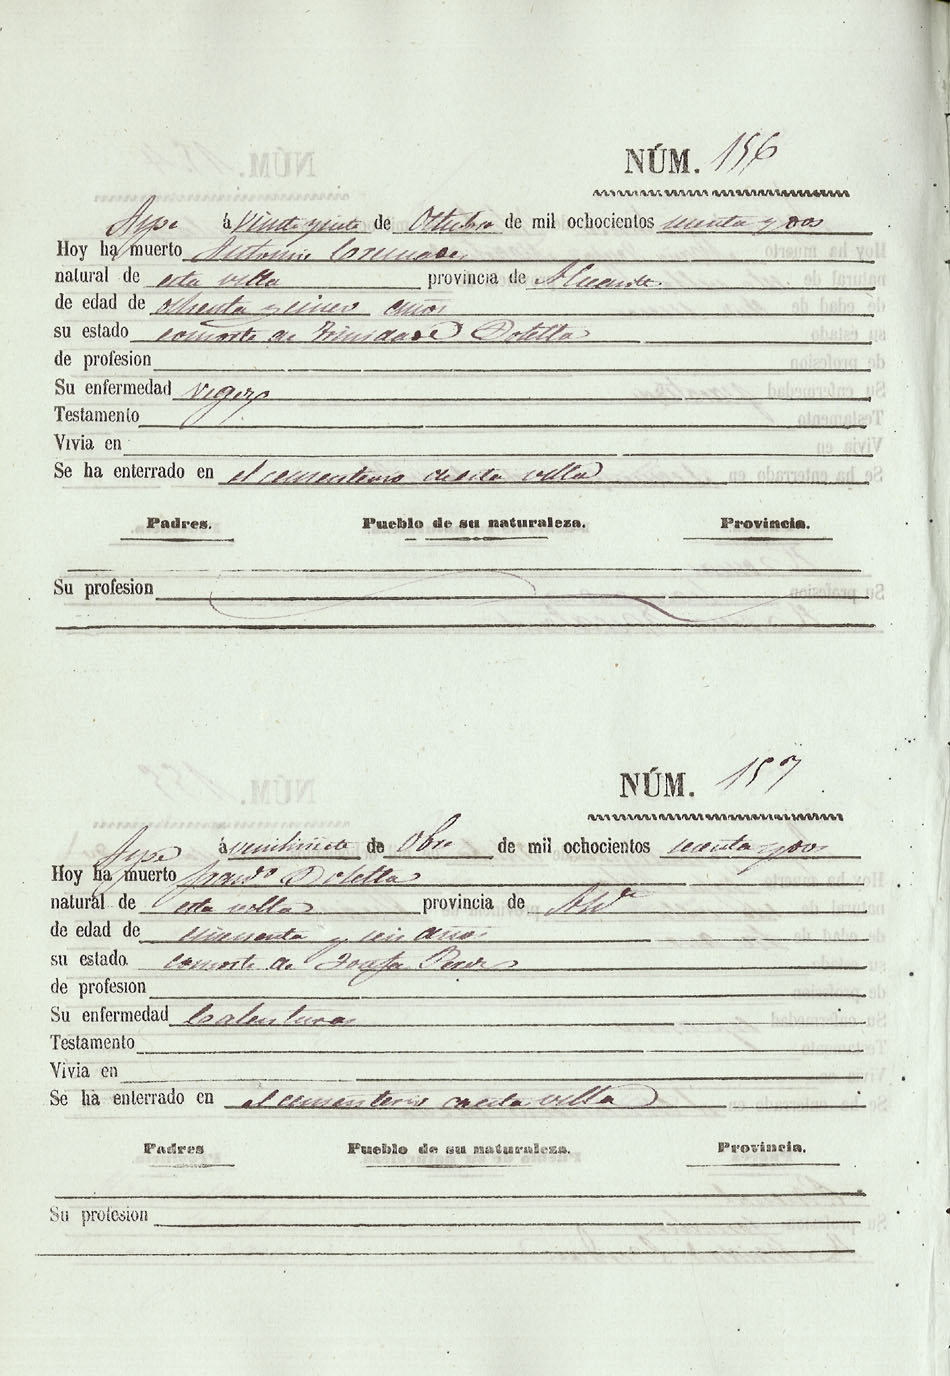 NÚM. 156
Aspe á veinte y siete de Octubre de mil ochocientos sesenta y dos
Hoy ha muerto Antonio
natural de esta villa provincia de Alicante
de edad de ochenta y cinco años
su estado consorte de Trinidad Botella
de profesion
Su enfermedad vegez
Testamento
Vivia en
Se ha enterrado en el cementerio de esta villa
Padres. Pueblo de su naturaleza. Provincia.
Su profesion
NÚM. 157
Aspe á veintisiete de Obre de mil ochocientos sesenta y dos
Hoy ha muerto Franco Botella
natural de esta villa provincia de Alicte
de edad de cincuenta y seis años
su estado consorte de Josefa Perez
de profesion
Su enfermedad Calentura
Testamento
Vivia en
Se ha enterrado en el cementerio de esta villa
Padres Pueblo de su naturaleza. Provincia.
Su profesion